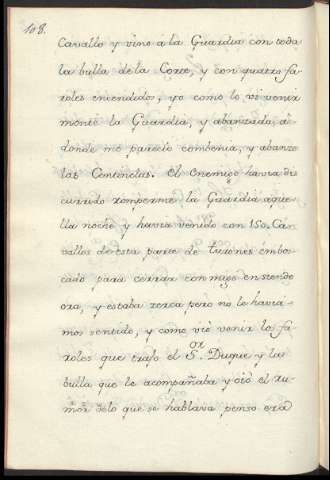 108.
Cavallo y vino à la Guardia con toda
la bulla de la Corte, y con quatro fa
roles encendidos, yo como lo vi venir
monté la Guardia, y abanzado, a
donde me parecio combenia, y abanze
las Centenelas. el enemigo havia dis
currido romperme la Guardia aque
lla noche y havia venido con 150. Ca
vallos de esta parte de turones embos
cado para cerrar conmigo en siendo
ora, y estaba zerca pero no le havia
mos sentido, y como vio venir lo fa
roles que trajo el S.or Duque y la
bulla que le acompañaba y oió el ru
mor delo que se hablava penso era